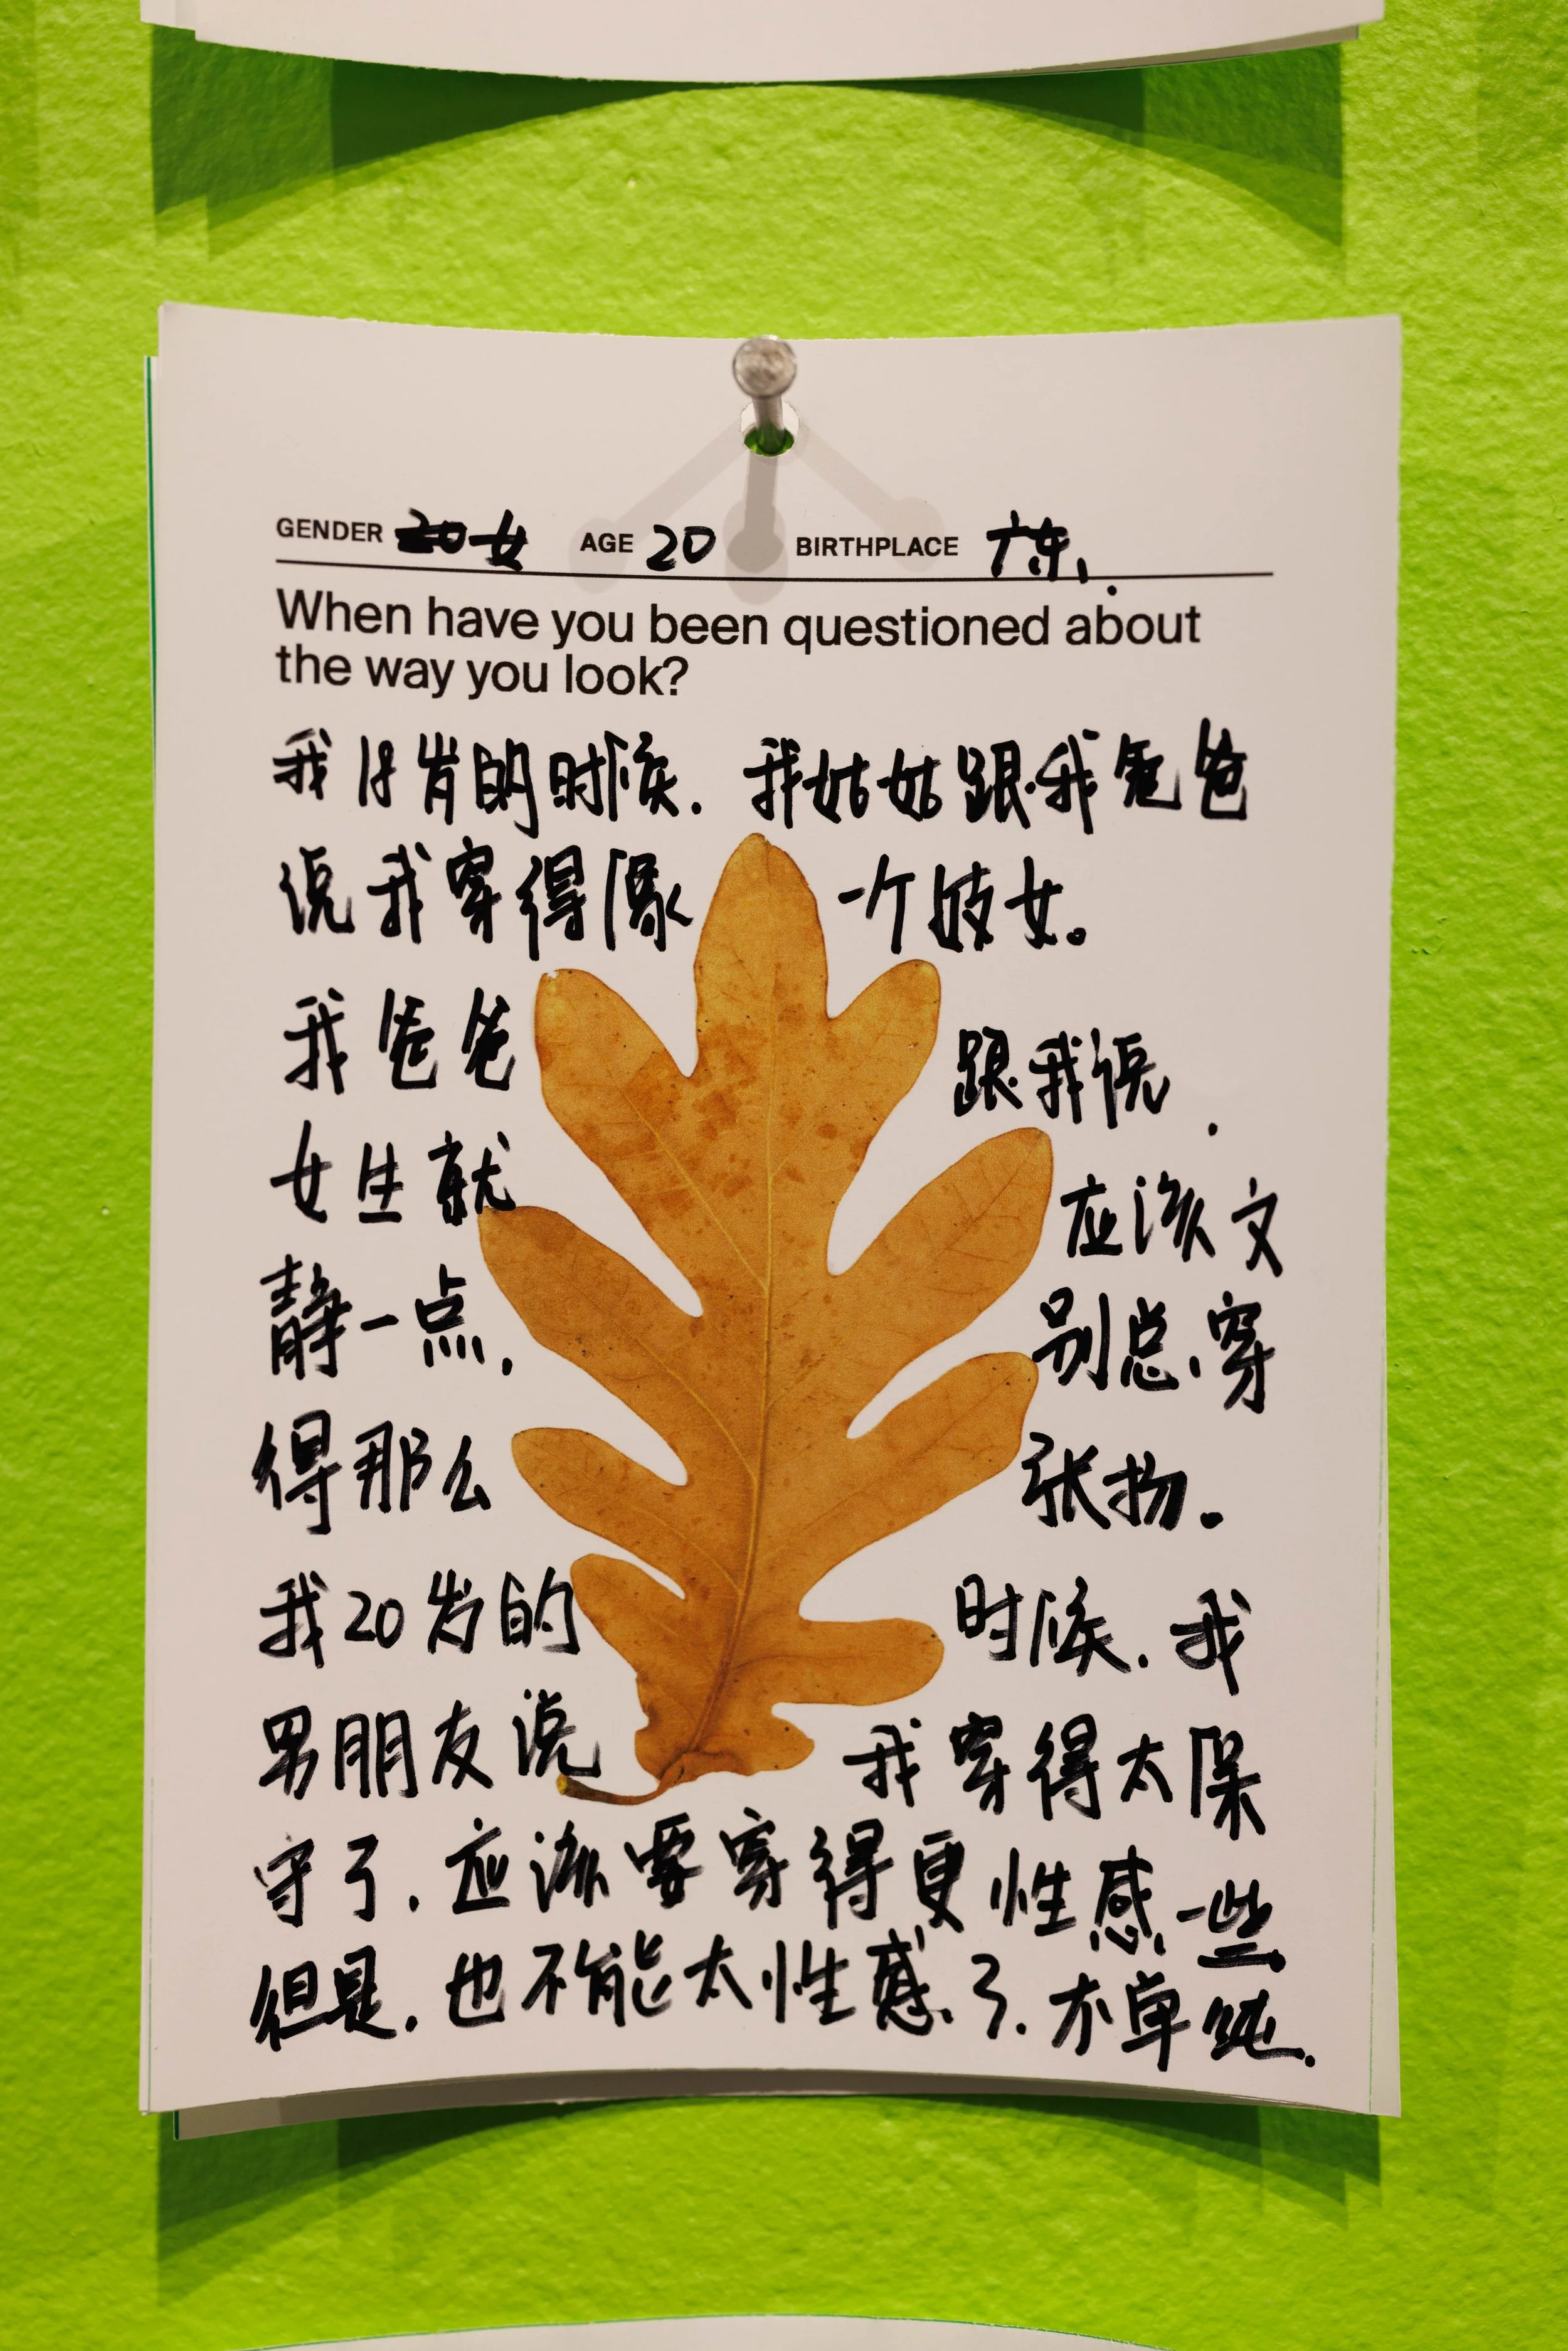 GENDER 女 AGE 20 BIRTHPLACE 广东.
When have you been questioned about
the way you look?
我18岁的时候. 我姑姑跟我爸爸
说我穿得像一个妓女。
我爸爸跟我说.
女生就应该文
静一点.别总穿
得那么张扬。
我20岁的时候.我
男朋友说我穿得太保
守了.应该要穿得更性感一些.
但是.也不能太性感了.不单纯.